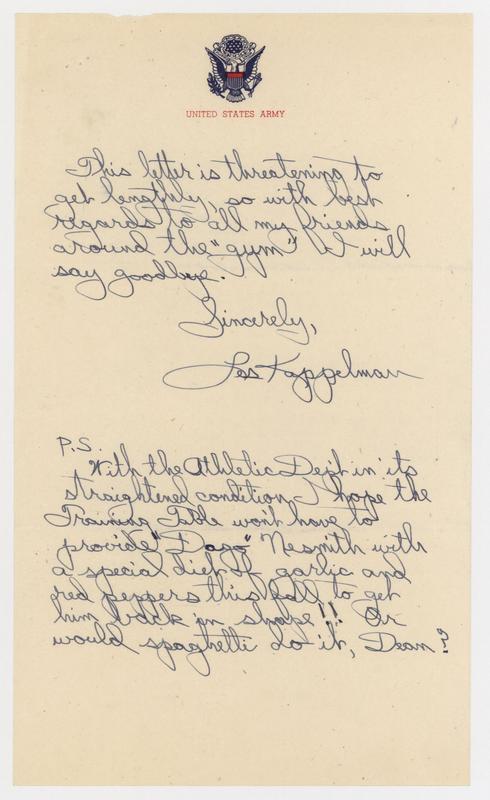 UNITED STATES ARMY
This letter is threatening to
get lengthly, so with best
regards to all my friends
around the "gym" I will
say goodbye.
Sincerely,
Les Kappelman
P.S.
With the Athletic Dept in its
straightened condition, I hope the
Training Table won't have to
provide "Dago" Nesmith with
a special diet of garlic and
red peppers this fall to get
him back in shape!! Or
would spaghetti do it, Dean?